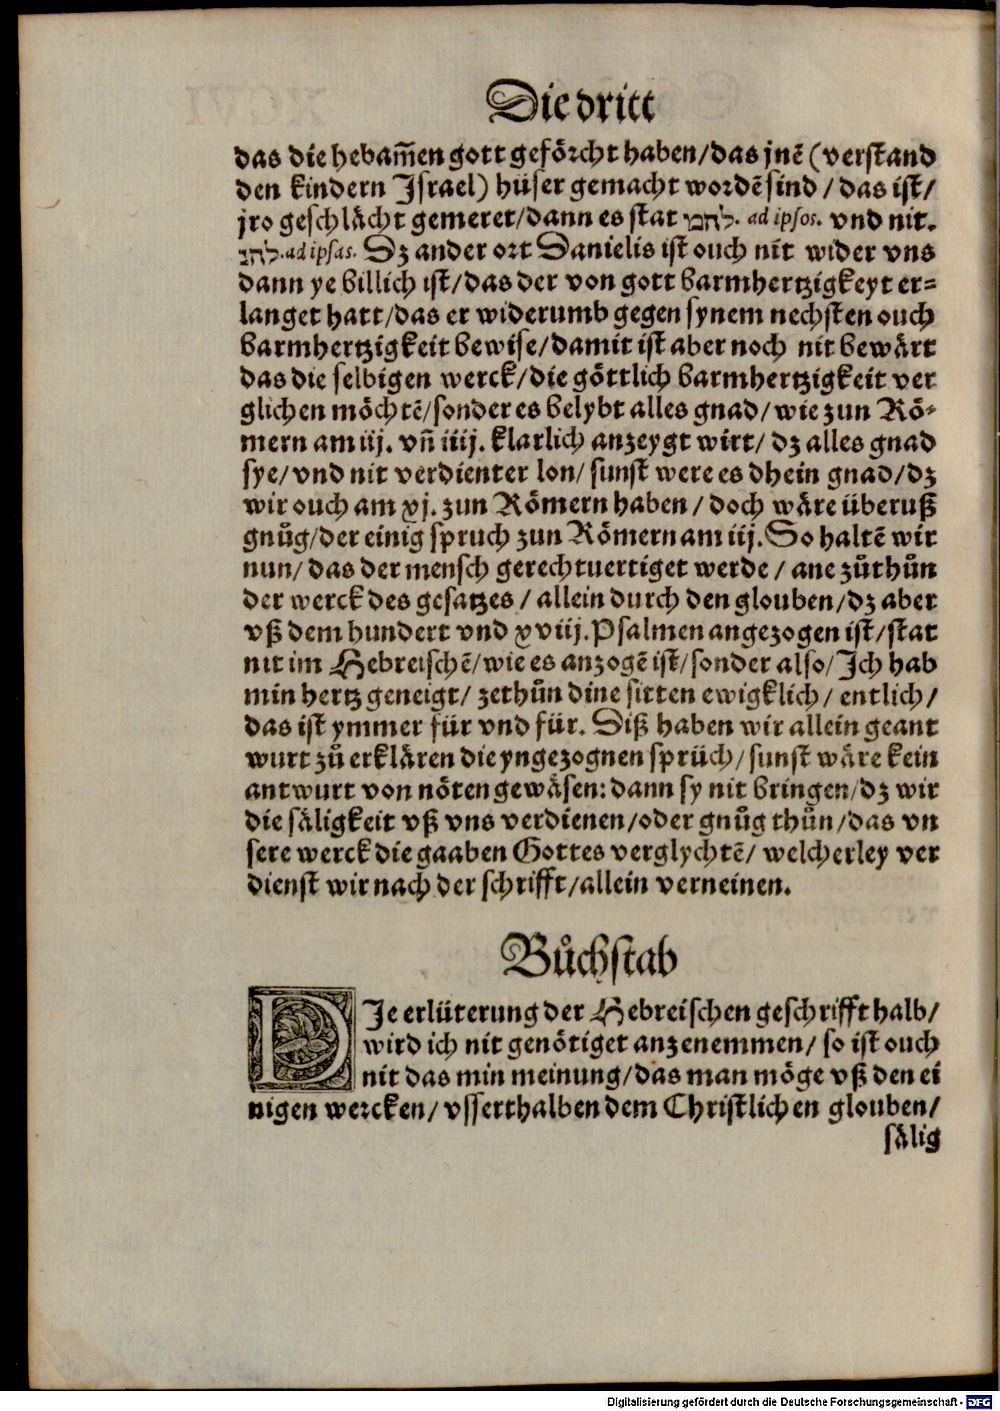 Die dritt
das die hebam̄en gott geförcht haben/das jnē (verstand
den kindern Israel) hüser gemacht wordē sind / das ist/
jro geschlächt gemeret/dann es stat להם. ad ipsos. vnd nit.
להן.ad ipsas. Dz ander ort Danielis ist ouch nit wider vns
dann ye billich ist/das der von gott barmhertzigkeyt er-
langet hatt/das er widerumb gegen synem nechsten ouch
barmhertzigkeit bewise/damit ist aber noch nit bewärt
das die selbigen werck/die göttlich barmhertzigkeit ver
glichen möchtē/sonder es belybt alles gnad/wie zun Rö-
mern am iij. vn̄ iiij. klarlich anzeygt wirt/ dz alles gnad
sye/vnd nit verdienter lon/ sunst were es dhein gnad/dz
wir ouch am xj. zun Römern haben / doch wäre überuß
gnůg/der einig spruch zun Römern am iij. So haltē wir
nun/ das der mensch gerechtuertiget werde / ane zůthůn
der werck des gesatzes / allein durch den glouben/dz aber
vß dem hundert vnd xviij. Psalmen angezogen ist/stat
nit im Hebreischē/wie es anzogē ist/sonder also/Ich hab
min hertz geneigt/ zethůn dine sitten ewigklich/ entlich/
das ist ymmer für vnd für. Diß haben wir allein geant
wurt zů erklären die yngezognen sprüch/sunst wäre kein
antwurt von nöten gewäsen: dann sy nit bringen/dz wir
die säligkeit vß vns verdienen/oder gnůg thůn/das vn
sere werck die gaaben Gottes verglychtē/ welcherley ver
dienst wir nach der schrifft/allein verneinen.
Bůchstab
DIe erlüterung der Hebreischen geschrifft halb/
wird ich nit genötiget anzenemmen/ so ist ouch
nit das min meinung/das man möge vß den ei
nigen wercken/ vsserthalben dem Christlichen glouben/
sälig
Digitalisierung gefördert durch die Deutsche Forschungsgemeinschaft - DFG